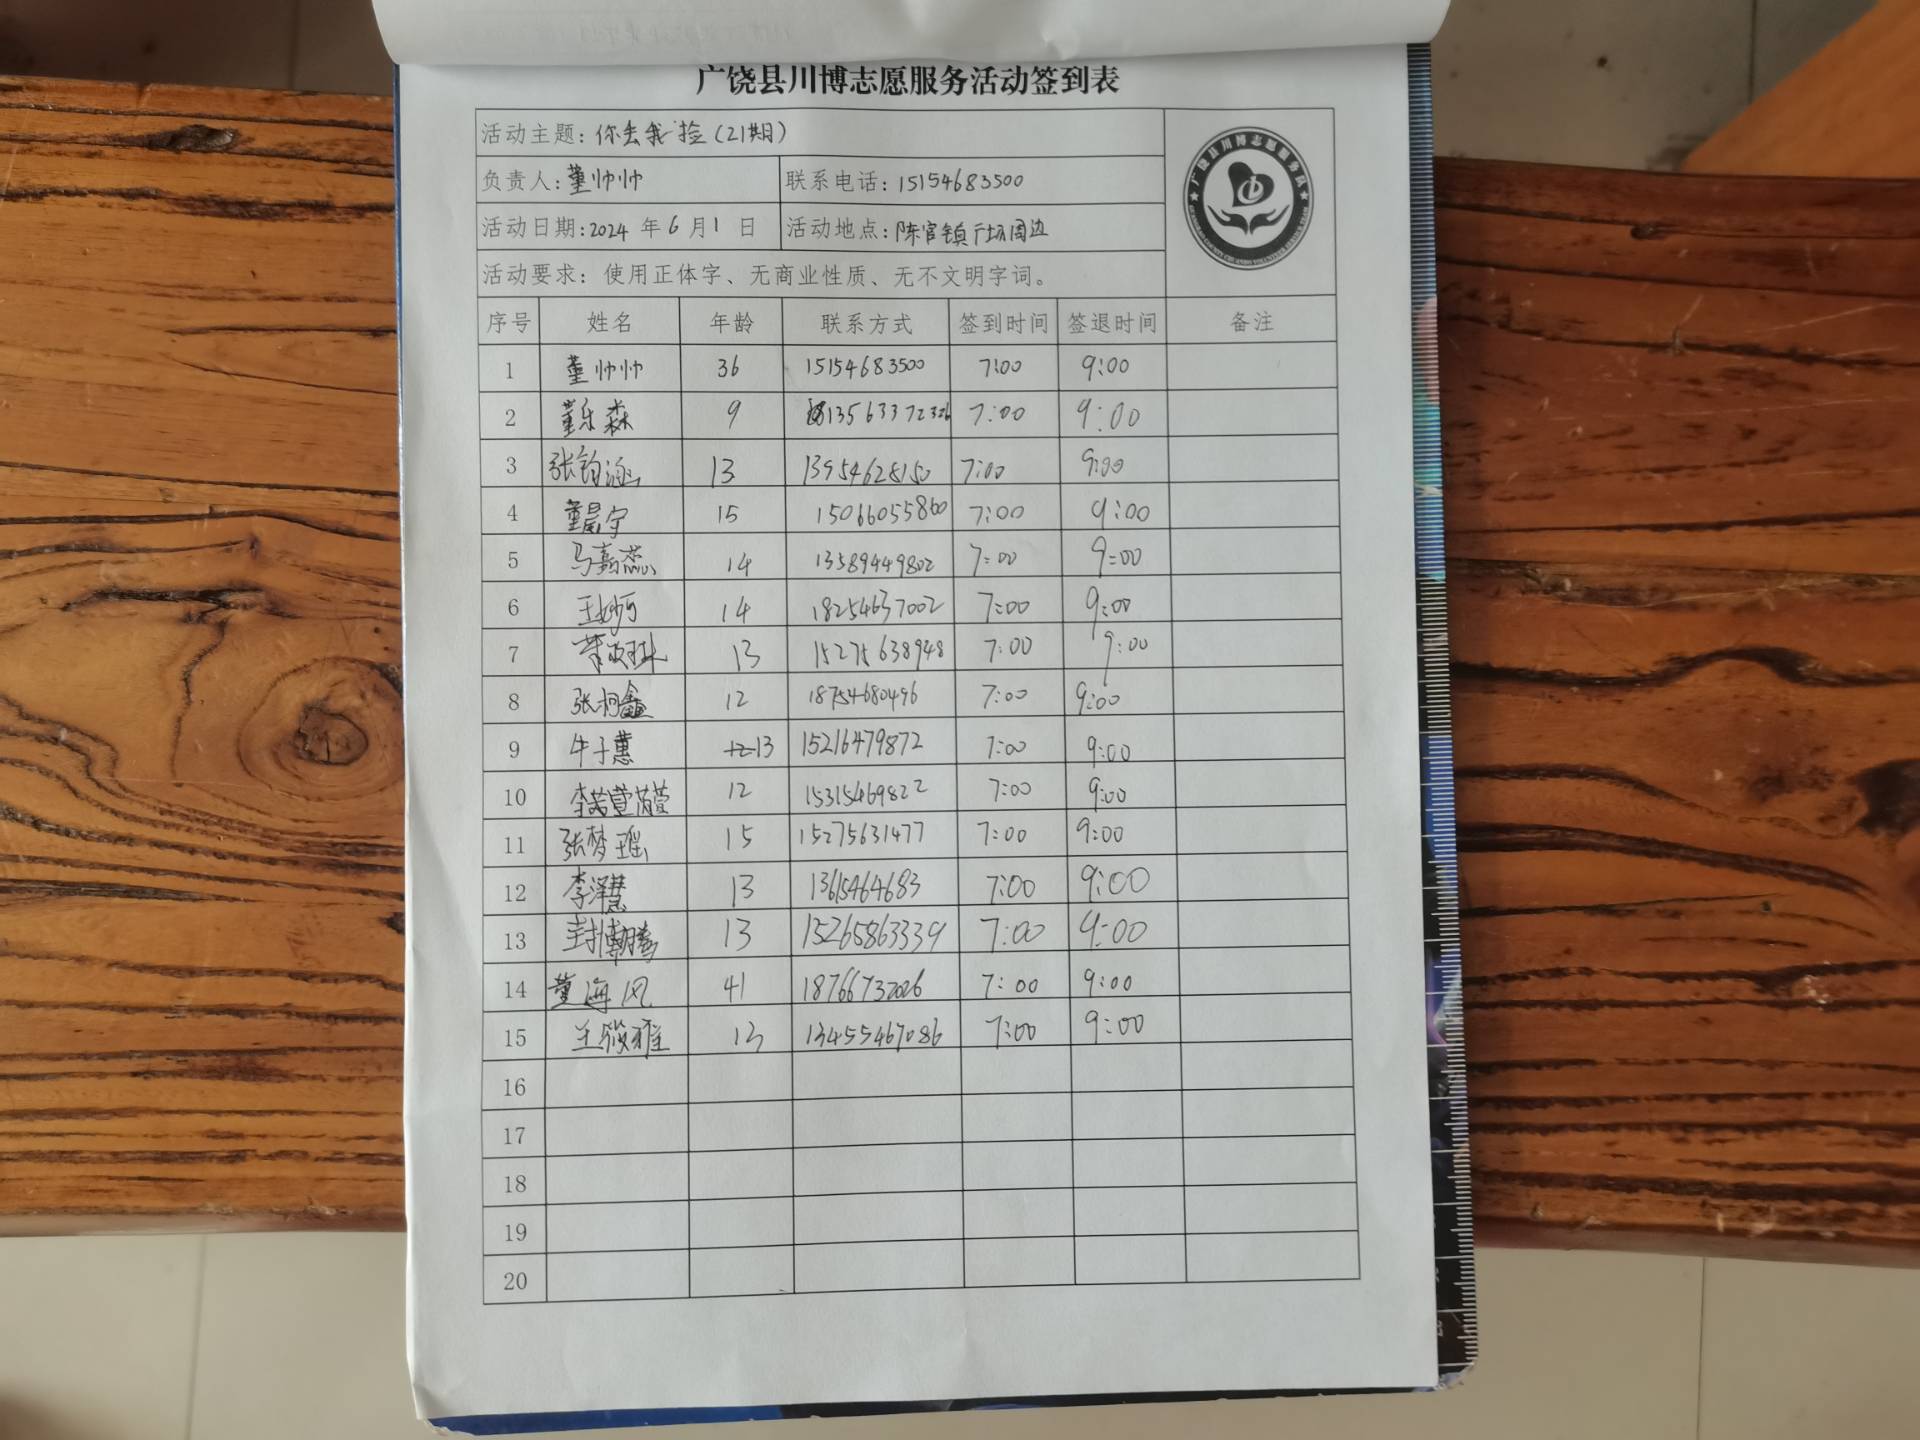 广饶县川博志愿服务活动签到表
活动主题: 你丢我捡(21期)
广饶县川博志愿服务队
负责人: 董帅帅 联系电话: 15154683500
活动日期: 2024 年 6 月 1 日 活动地点: 陈官镇广场周边
活动要求: 使用正体字、无商业性质、无不文明字词。
序号 姓名 年龄 联系方式 签到时间 签退时间 备注
1 董帅帅 36 15154683500 7:00 9:00
2 董乐森 9 13563372326 7:00 9:00
3 张钧涵 13 13954628150 7:00 9:00
4 董晨宁 15 15066055860 7:00 9:00
5 马嘉蕊 14 13589449802 7:00 9:00
6 王妙可 14 18254637002 7:00 9:00
7 13 15275638948 7:00 9:00
8 张桐鑫 12 18754680496 7:00 9:00
9 牛子蕙 13 15216479872 7:00 9:00
10 12 15315469822 7:00 9:00
11 张梦瑶 15 15275631477 7:00 9:00
12 李泽慧 13 13615464683 7:00 9:00
13 封博腾 13 15265863339 7:00 9:00
14 董海风 41 18766732026 7:00 9:00
15 王筱雅 13 13455467086 7:00 9:00
16
17
18
19
20